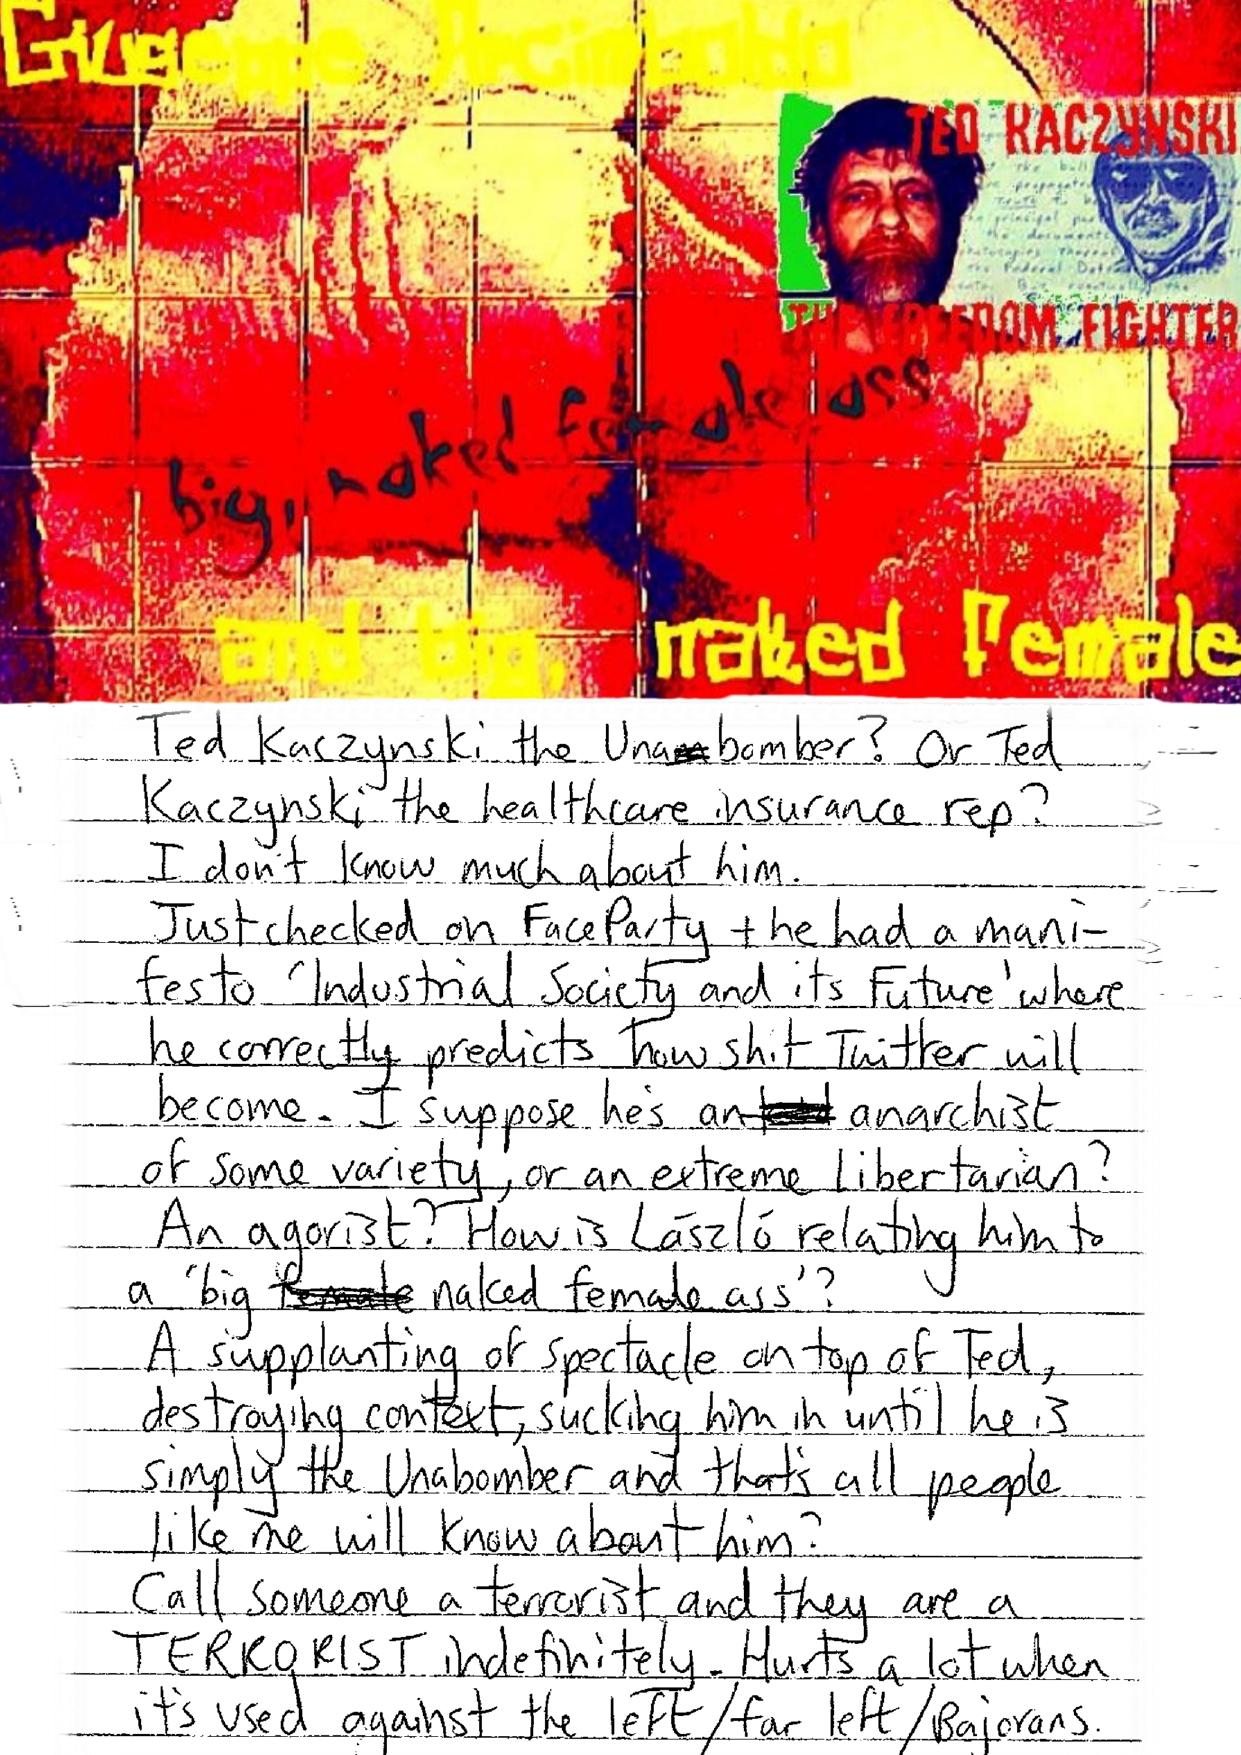 Giuseppe Arcimboldo
TED KACZYNSKI
THE FREEDOM FIGHTER
big, naked female ass
and big, naked Female
Ted Kaczynski the Unabomber? Or Ted
Kaczynski the healthcare insurance rep?
I don't know much about him.
Just checked on FaceParty + he had a mani-
festo 'Industrial Society and its Future' where
he correctly predicts how shit Twitter will
become. I suppose he's an anarchist
of some variety, or an extreme libertarian?
An agorist? How is László relating him to
a 'big female naked female ass'?
A supplanting of spectacle on top of Ted,
destroying context, sucking him in until he is
simply the Unabomber and that's all people
like me will know about him?
Call someone a terrorist and they are a
TERRORIST indefinitely. Hurts a lot when
it's used against the left/far left/Bajorans.